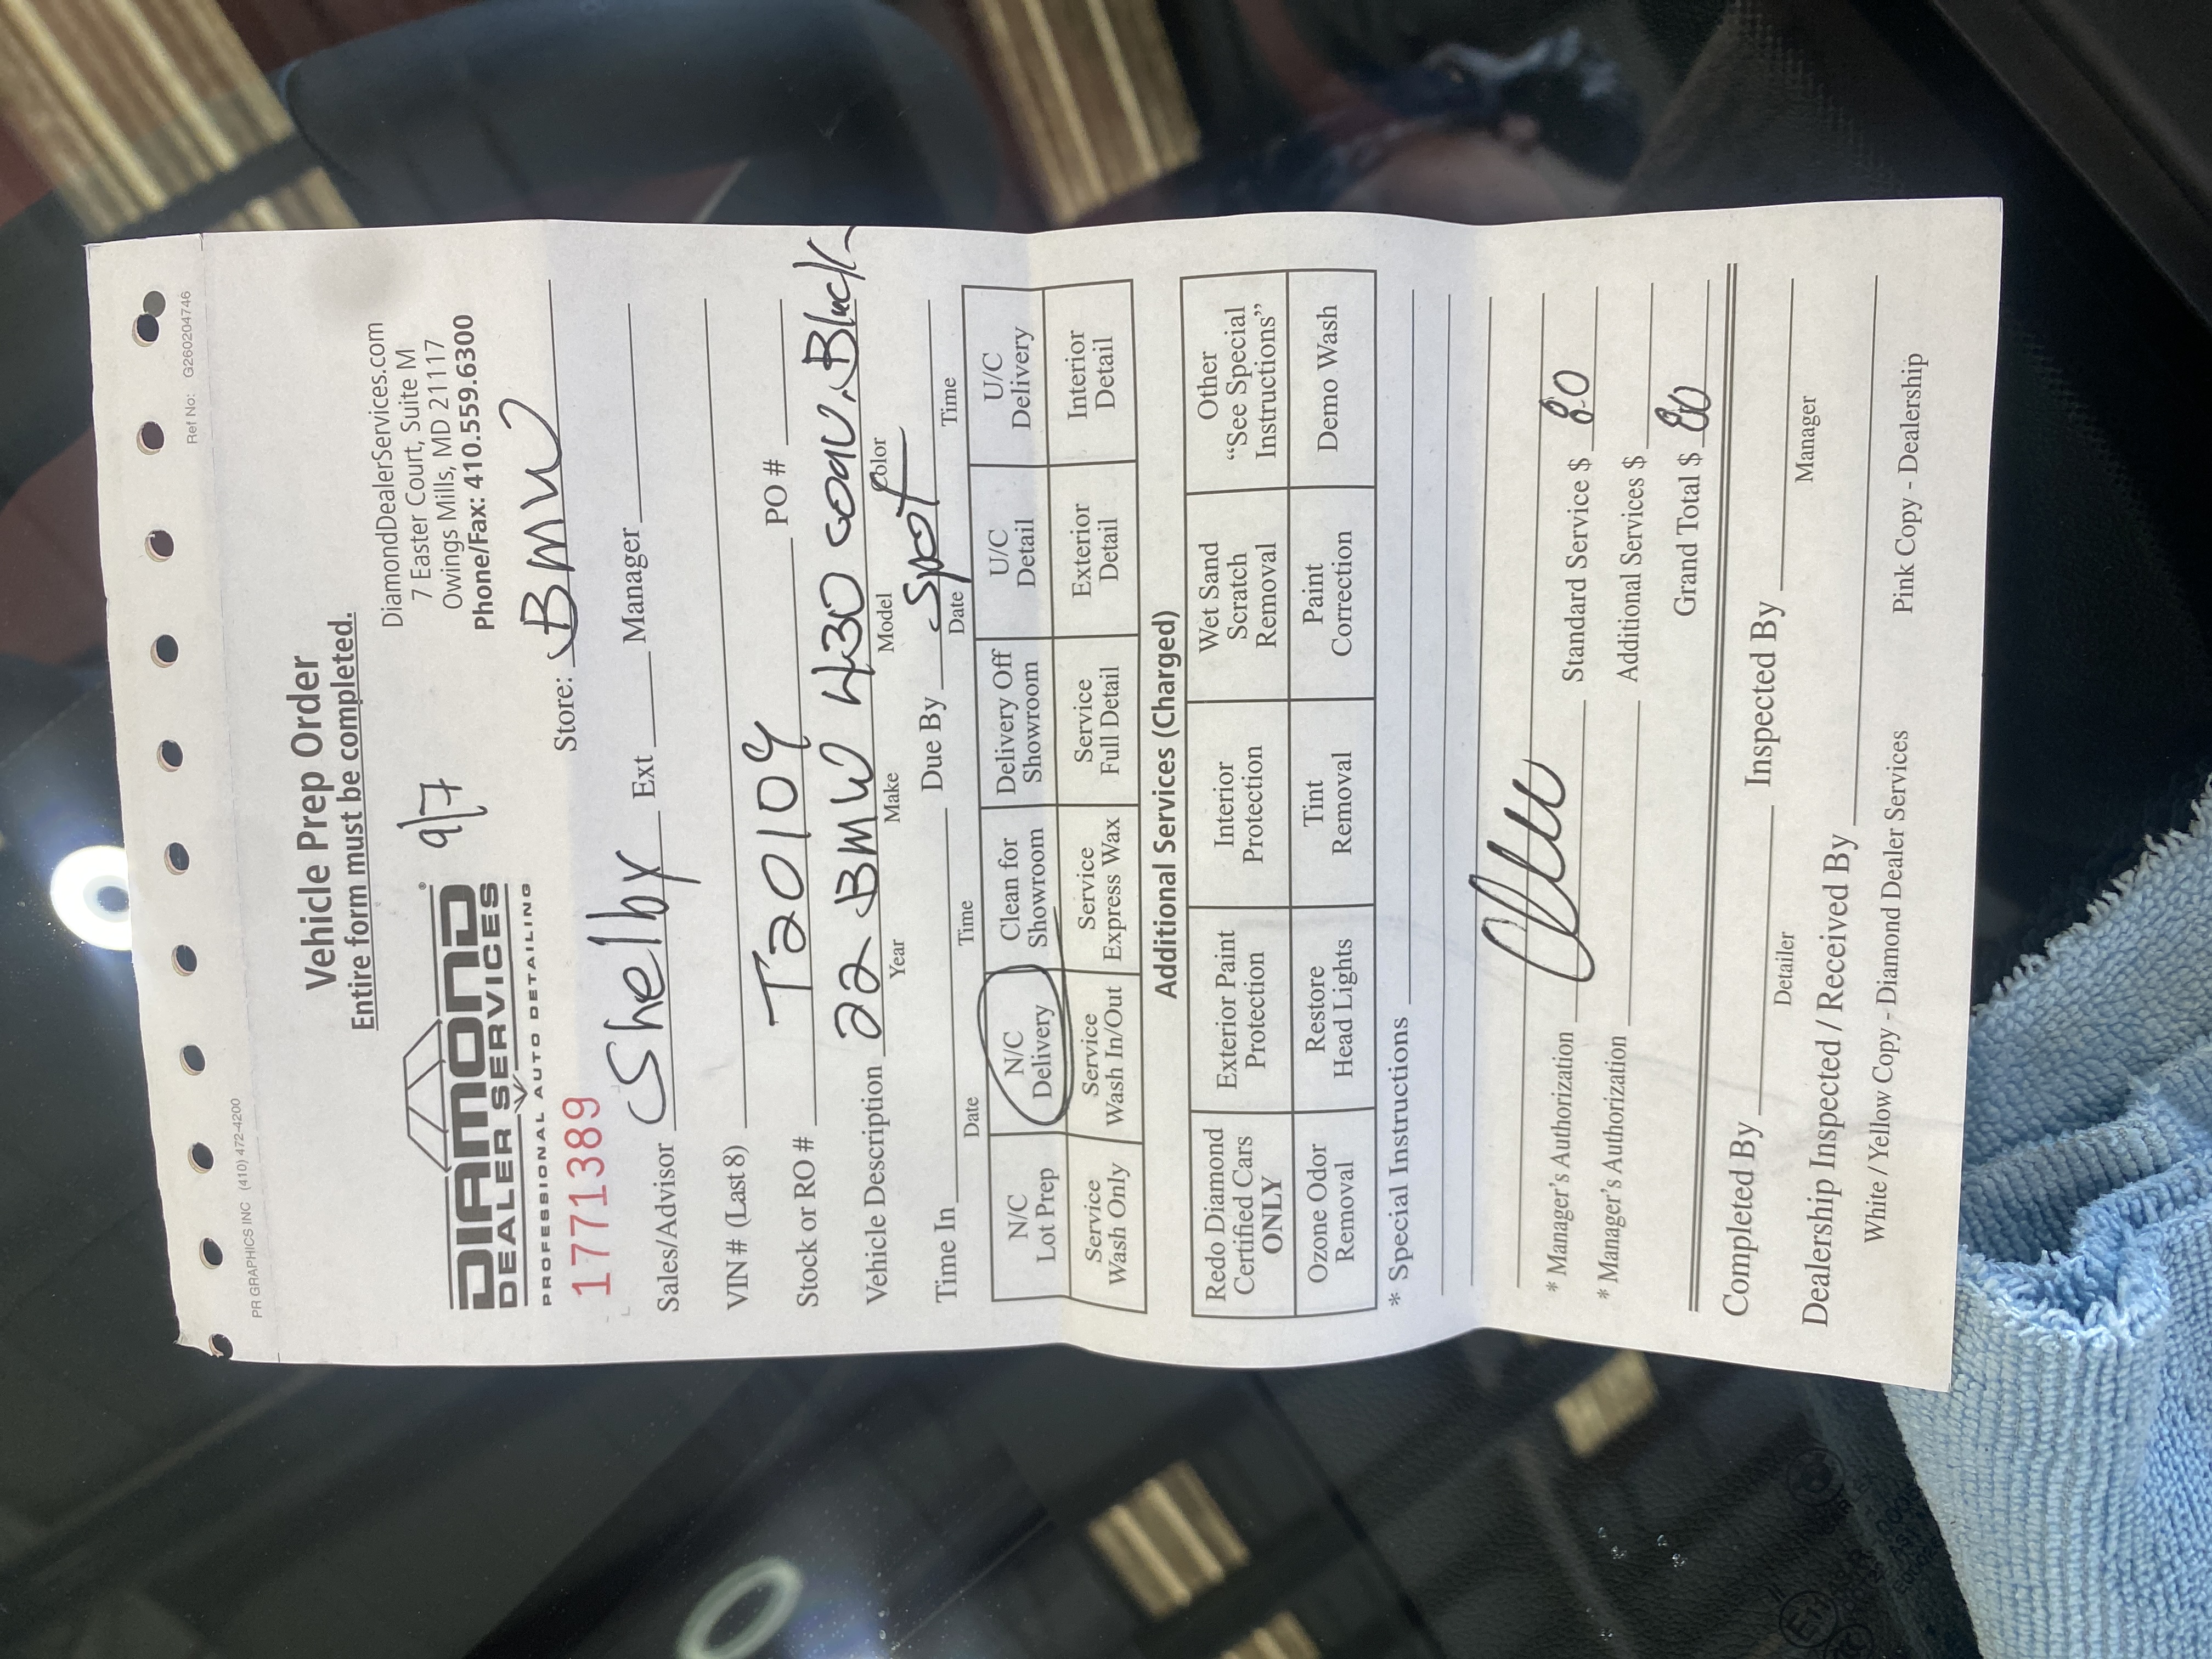 PR GRAPHICS INC (410) 472-4200 Ref No: G260204746
Vehicle Prep Order
Entire form must be completed.
DIAMOND®
DEALER SERVICES
PROFESSIONAL AUTO DETAILING
9/7
DiamondDealerServices.com
7 Easter Court, Suite M
Owings Mills, MD 21117
Phone/Fax: 410.559.6300
1771389
Store: BMW
Sales/Advisor Shelby Ext Manager
VIN # (Last 8)
Stock or RO # T20104 PO #
Vehicle Description 22 BMW 430 Black
Year Make Model Color
Time In Due By Spot
Date Time Date Time
N/C Lot Prep
N/C Delivery
Clean for Showroom
Delivery Off Showroom
U/C Detail
U/C Delivery
Service Wash Only
Service Wash In/Out
Service Express Wax
Service Full Detail
Exterior Detail
Interior Detail
Additional Services (Charged)
Redo Diamond Certified Cars ONLY
Exterior Paint Protection
Interior Protection
Wet Sand Scratch Removal
Other "See Special Instructions"
Ozone Odor Removal
Restore Head Lights
Tint Removal
Paint Correction
Demo Wash
* Special Instructions
* Manager's Authorization Standard Service $ 80
* Manager's Authorization Additional Services $
Grand Total $ 80
Completed By Inspected By
Detailer Manager
Dealership Inspected / Received By
White / Yellow Copy - Diamond Dealer Services Pink Copy - Dealership